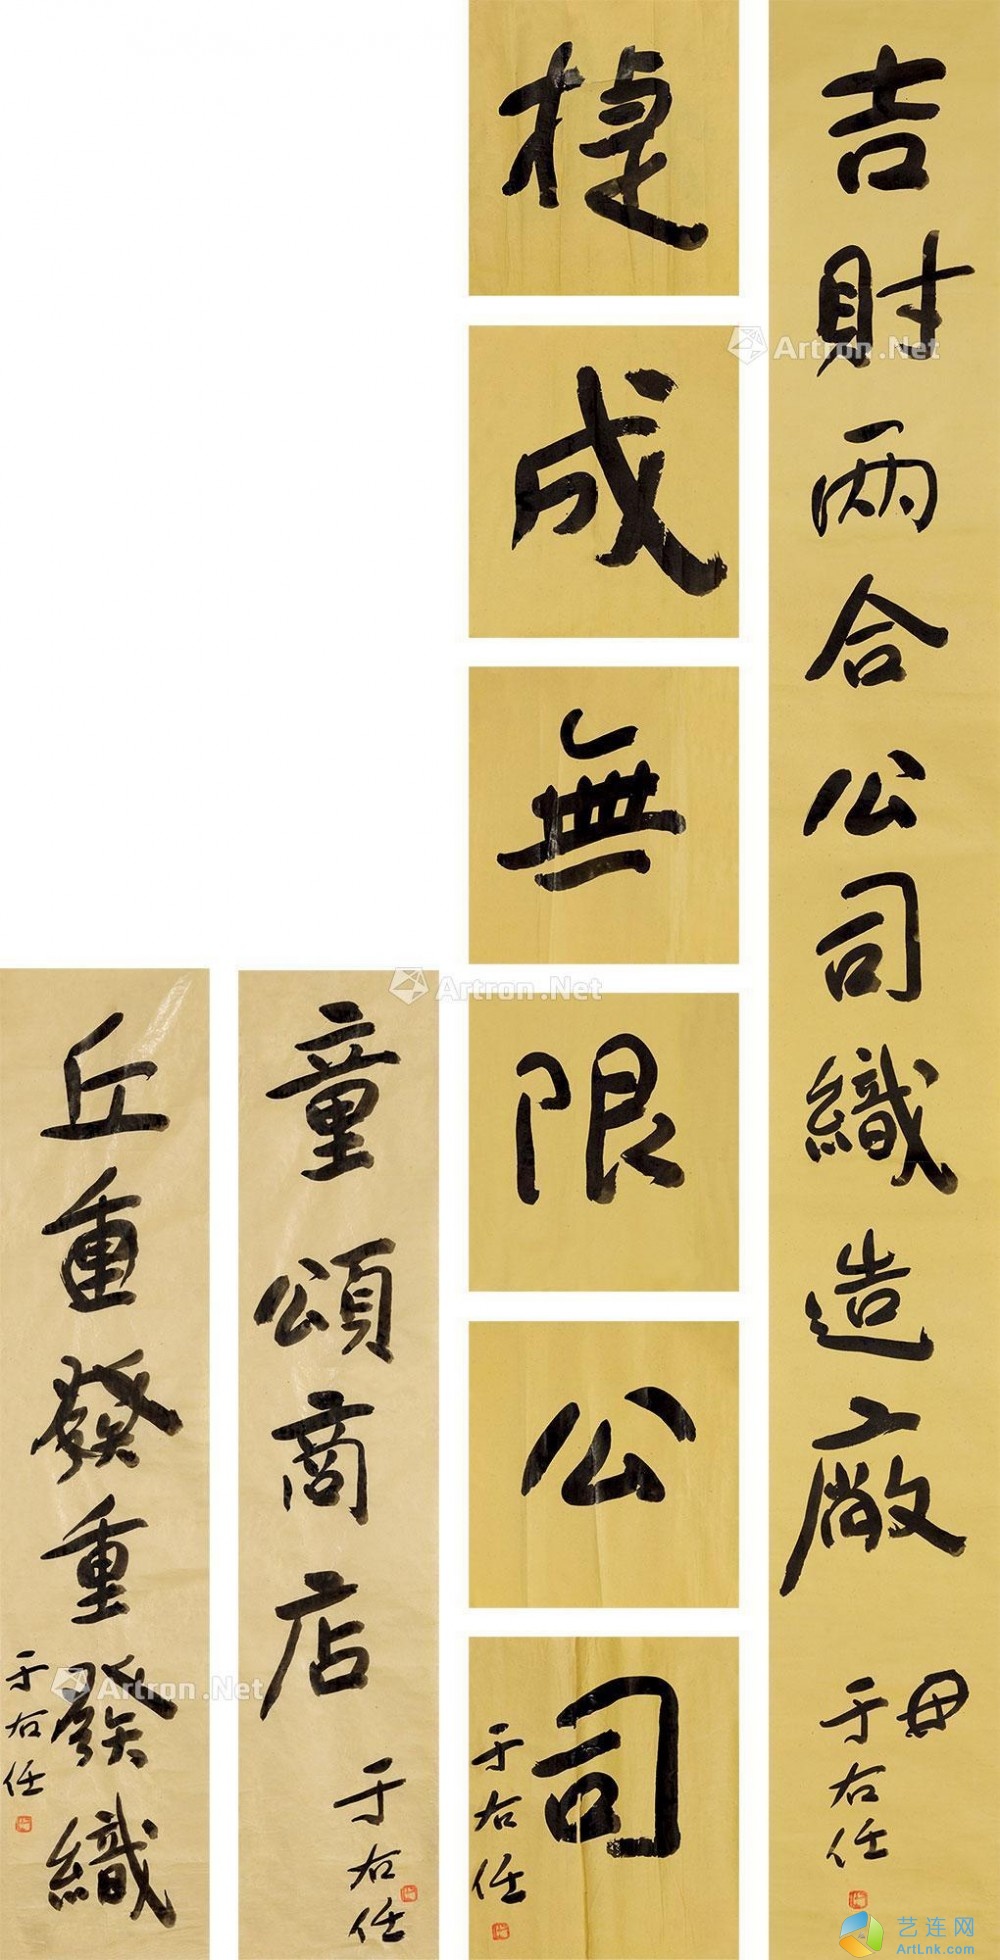 吉財兩合公司織造廠
于右任
捷成無限公司
于右任
童頌商店
于右任
丘重發重發織
于右任
Artron.Net
Artron.Net
Artron.Net
艺连网
ArtLnk.com